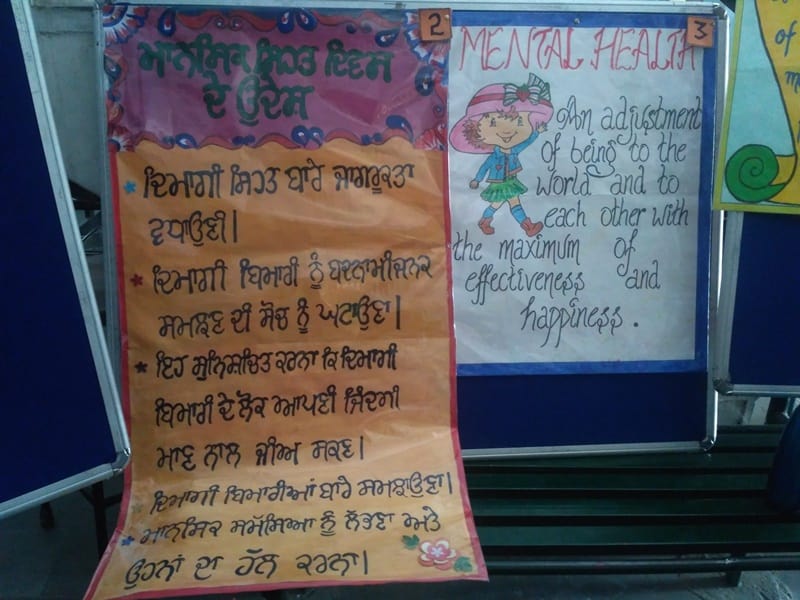 2
ਮਾਨਸਿਕ ਸਿਹਤ ਦਿਵਸ
ਦੇ ਉਦੇਸ਼
ਦਿਮਾਗੀ ਸਿਹਤ ਬਾਰੇ ਜਾਗਰੂਕਤਾ
ਵਧਾਉਣੀ।
ਦਿਮਾਗੀ ਬਿਮਾਰੀ ਨੂੰ ਬਦਨਾਮੀਜਨਕ
ਸਮਝਣ ਦੀ ਸੋਚ ਨੂੰ ਘਟਾਉਣਾ।
ਇਹ ਸੁਨਿਸ਼ਚਿਤ ਕਰਨਾ ਕਿ ਦਿਮਾਗੀ
ਬਿਮਾਰੀ ਦੇ ਲੋਕ ਆਪਣੀ ਜ਼ਿੰਦਗੀ
ਮਾਣ ਨਾਲ ਜੀਅ ਸਕਣ।
ਦਿਮਾਗੀ ਬਿਮਾਰੀਆਂ ਬਾਰੇ ਸਮਝਾਉਣਾ।
ਮਾਨਸਿਕ ਸਮੱਸਿਆ ਨੂੰ ਲੱਭਣਾ ਅਤੇ
ਉਹਨਾਂ ਦਾ ਹੱਲ ਕਰਨਾ।
3
MENTAL HEALTH
An adjustment
of being to the
world and to
each other with
the maximum of
effectiveness and
happiness.
of